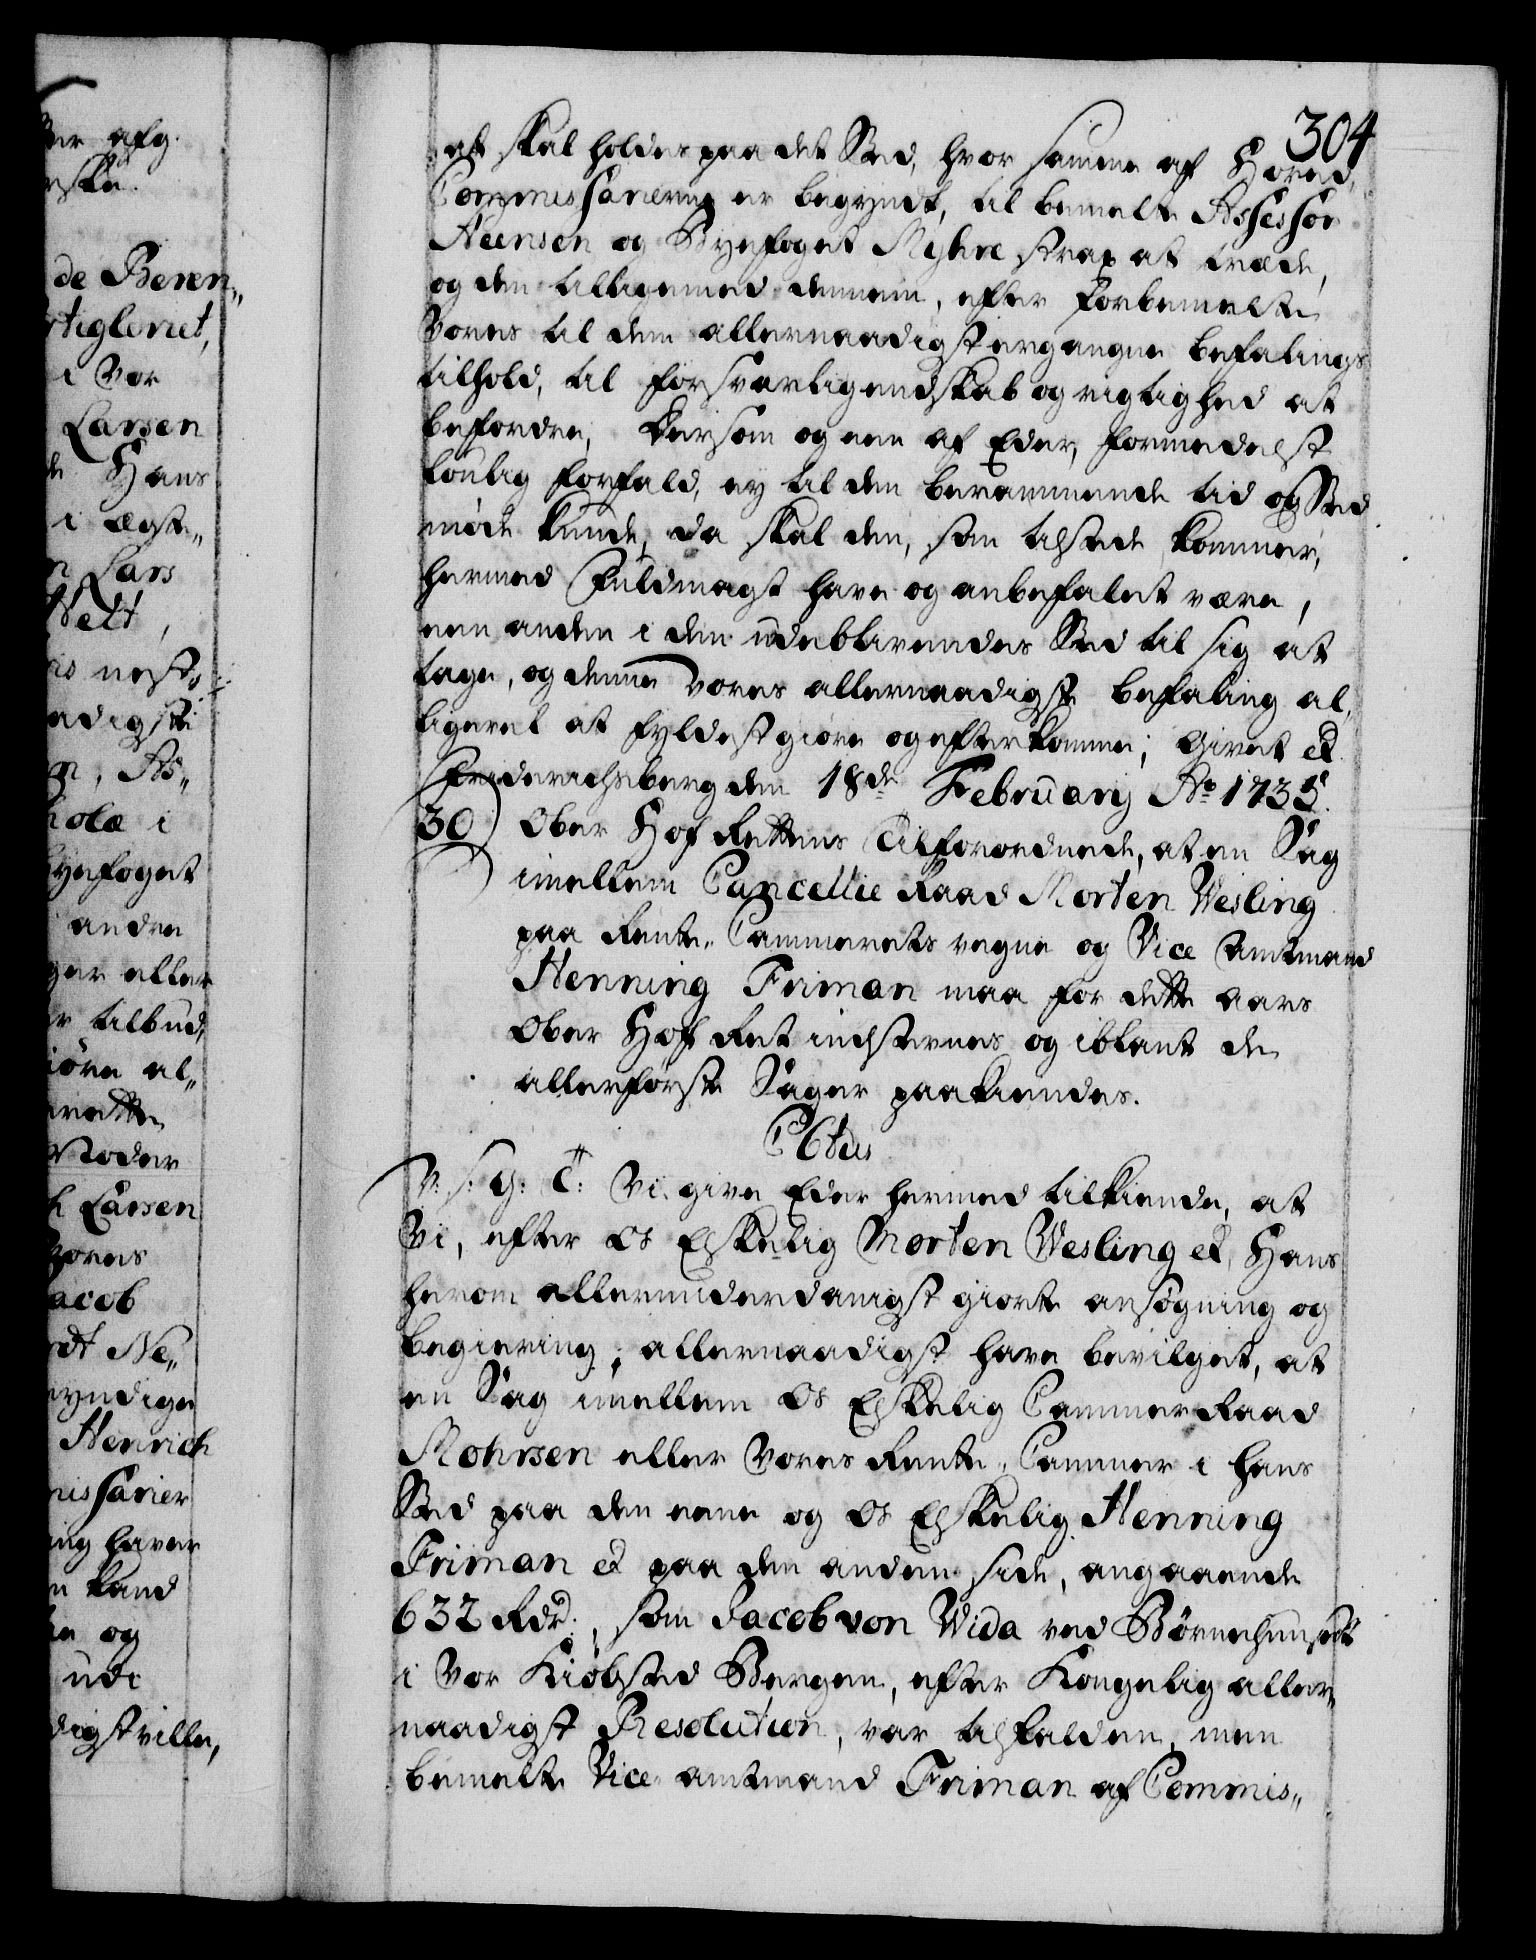 304
at skal holdes paa det Sted, hvor samme af Hoved,
Commissarierne er begyndt, til bemelte Assessor
Neensen og Byefoget Myhre strax at træde,
og den tilligemed dennem, efter forbemelte
Vores til dem allernaadigst ergangne befalings
tilhold, til forsvarlig endskab og rigtighed at
befordre; Dersom og een af Eder, formedelst
louglig forfald, ey til den berammende tid og Sted
møde kunde, da skal den, som tilstede kommer,
hermed Fuldmagt have og anbefalet være,
een anden i den udeblivendes Sted til sig at
tage, og denne Vores allernaadigste befaling al,
ligevel at fyldestgiøre og efterkomme; Givet etc.
Friderichsberg den 18de Februarij Ao 1735.
30) Ober Hof Rettens Tilforordnede, at en Sag
imellem Cancellie Raad Morten Wesling
paa Rente-Cammerets vegne og Vice Amtmand
Henning Friman maa for dette aars
Ober Hof Ret indstevnes og iblant de
allerførste Sager paakiendes.
C 6tus
V: S: G: T: Vi give Eder hermed tilkiende, at
Vi, efter Os Elskelig Morten Wesling etc. Hans
herom allerunderdanigst giorte ansøgning og
begiering; allernaadigst have bevilget, at
en Sag imellem Os Elskelig Cammer Raad
Mohrsen eller Vores Rente-Cammer i hans
Sted paa den eene og Os Elskelig Henning
Friman etc. paa den anden side, angaaende
632 Rdr., som Jacob von Wida ved Børnehuuset
i Vor Kiøbsted Bergen, efter Kongelig aller„
naadigst Resolution, var tilfalden, men
bemelte Vice-amtmand Friman af Commis„